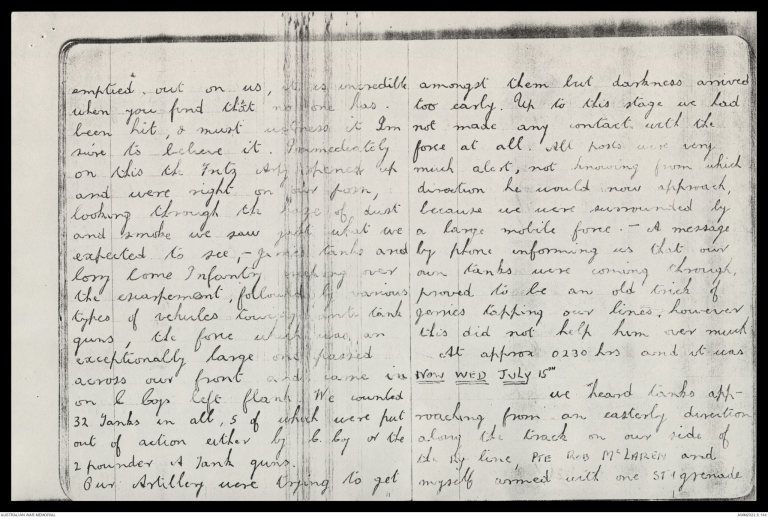 emptied out on us, it is incredible
when you find that no one has.
been hit, & must witness it Im
sure to believe it. Immediately
on this the Fritz Arty opened up
and were right on our posn,
looking through the haze of dust
and smoke we saw just what we
expected to see, - Jerries tanks and
lorry borne Infantry over
the escarpement, followed by various
types of vehicles towing anti tank
guns, the force which was an
exceptionally large one passed
across our front and came in
on C Coys left flank. We counted
32 Tanks in all, 5 of which were put
out of action either by C. Coy or the
2 pounder A Tank guns.
Our Artillery were trying to get
amongst them but darkness arrived
too early. Up to this stage we had
not made any contact with the
force at all. All posts were very
much alert, not knowing from which
direction he would now approach,
because we were surrounded by
a large mobile force. - A message
by phone informing us that our
own tanks were coming through,
proved to be an old trick of
jerries tapping our lines, however
this did not help him over much
At approx 0230 hrs and it was
NOW WED JULY 15TH
we heard tanks app-
roaching from an easterly direction
along the track on our side of
the Ry line, PTE ROB McLAREN and
myself armed with one ST grenade
AUSTRALIAN WAR MEMORIAL